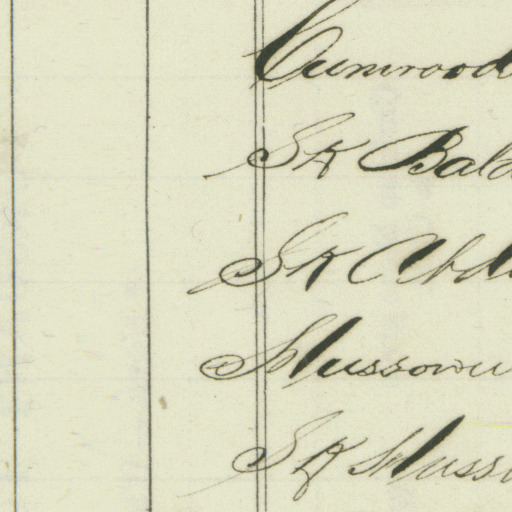 Cumrood
SK Bald
SK Abd
Mussowu
SK Muss